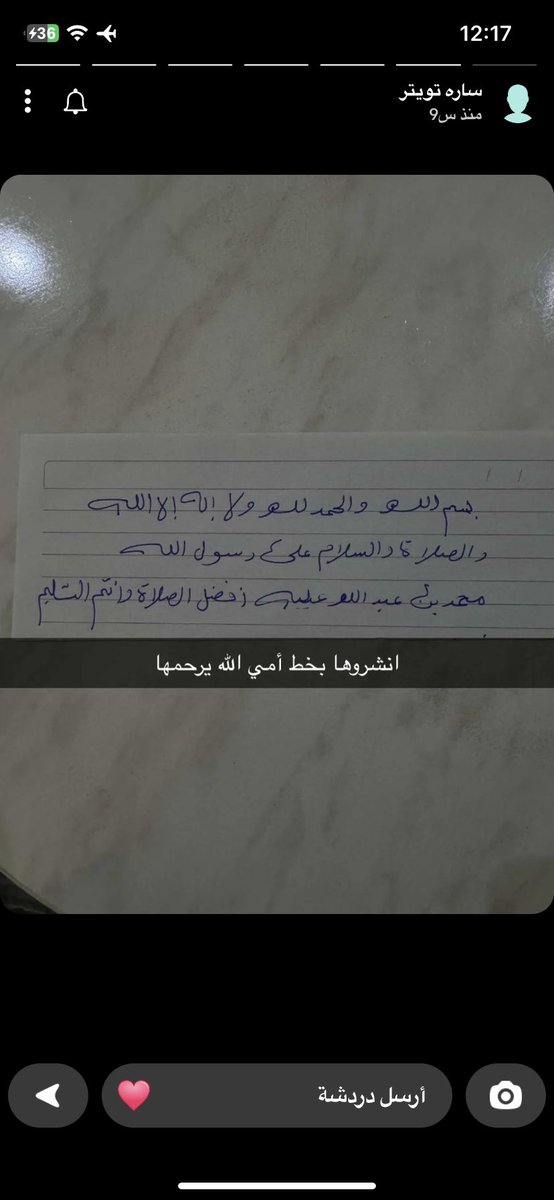 12:17
36
ساره تويتر
منذ س9
بسم الله والحمد لله ولا إله إلا الله
والصلاة والسلام على رسول الله
محمد بن عبد الله عليه أفضل الصلاة وأتم التسليم
انشروها بخط أمي الله يرحمها
أرسل دردشة